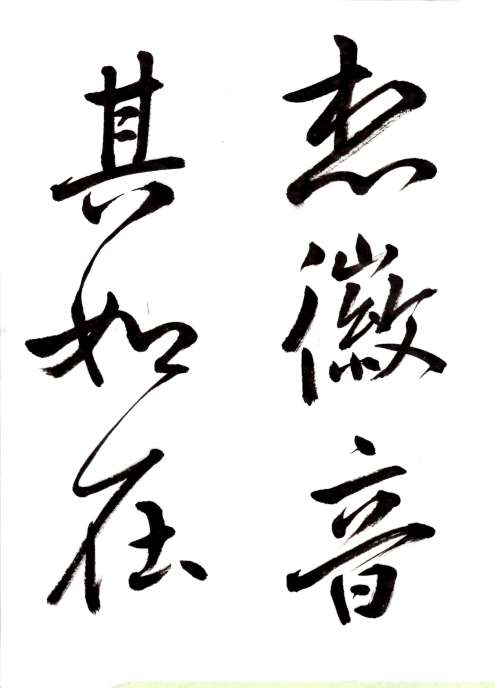 想徽音
其如在